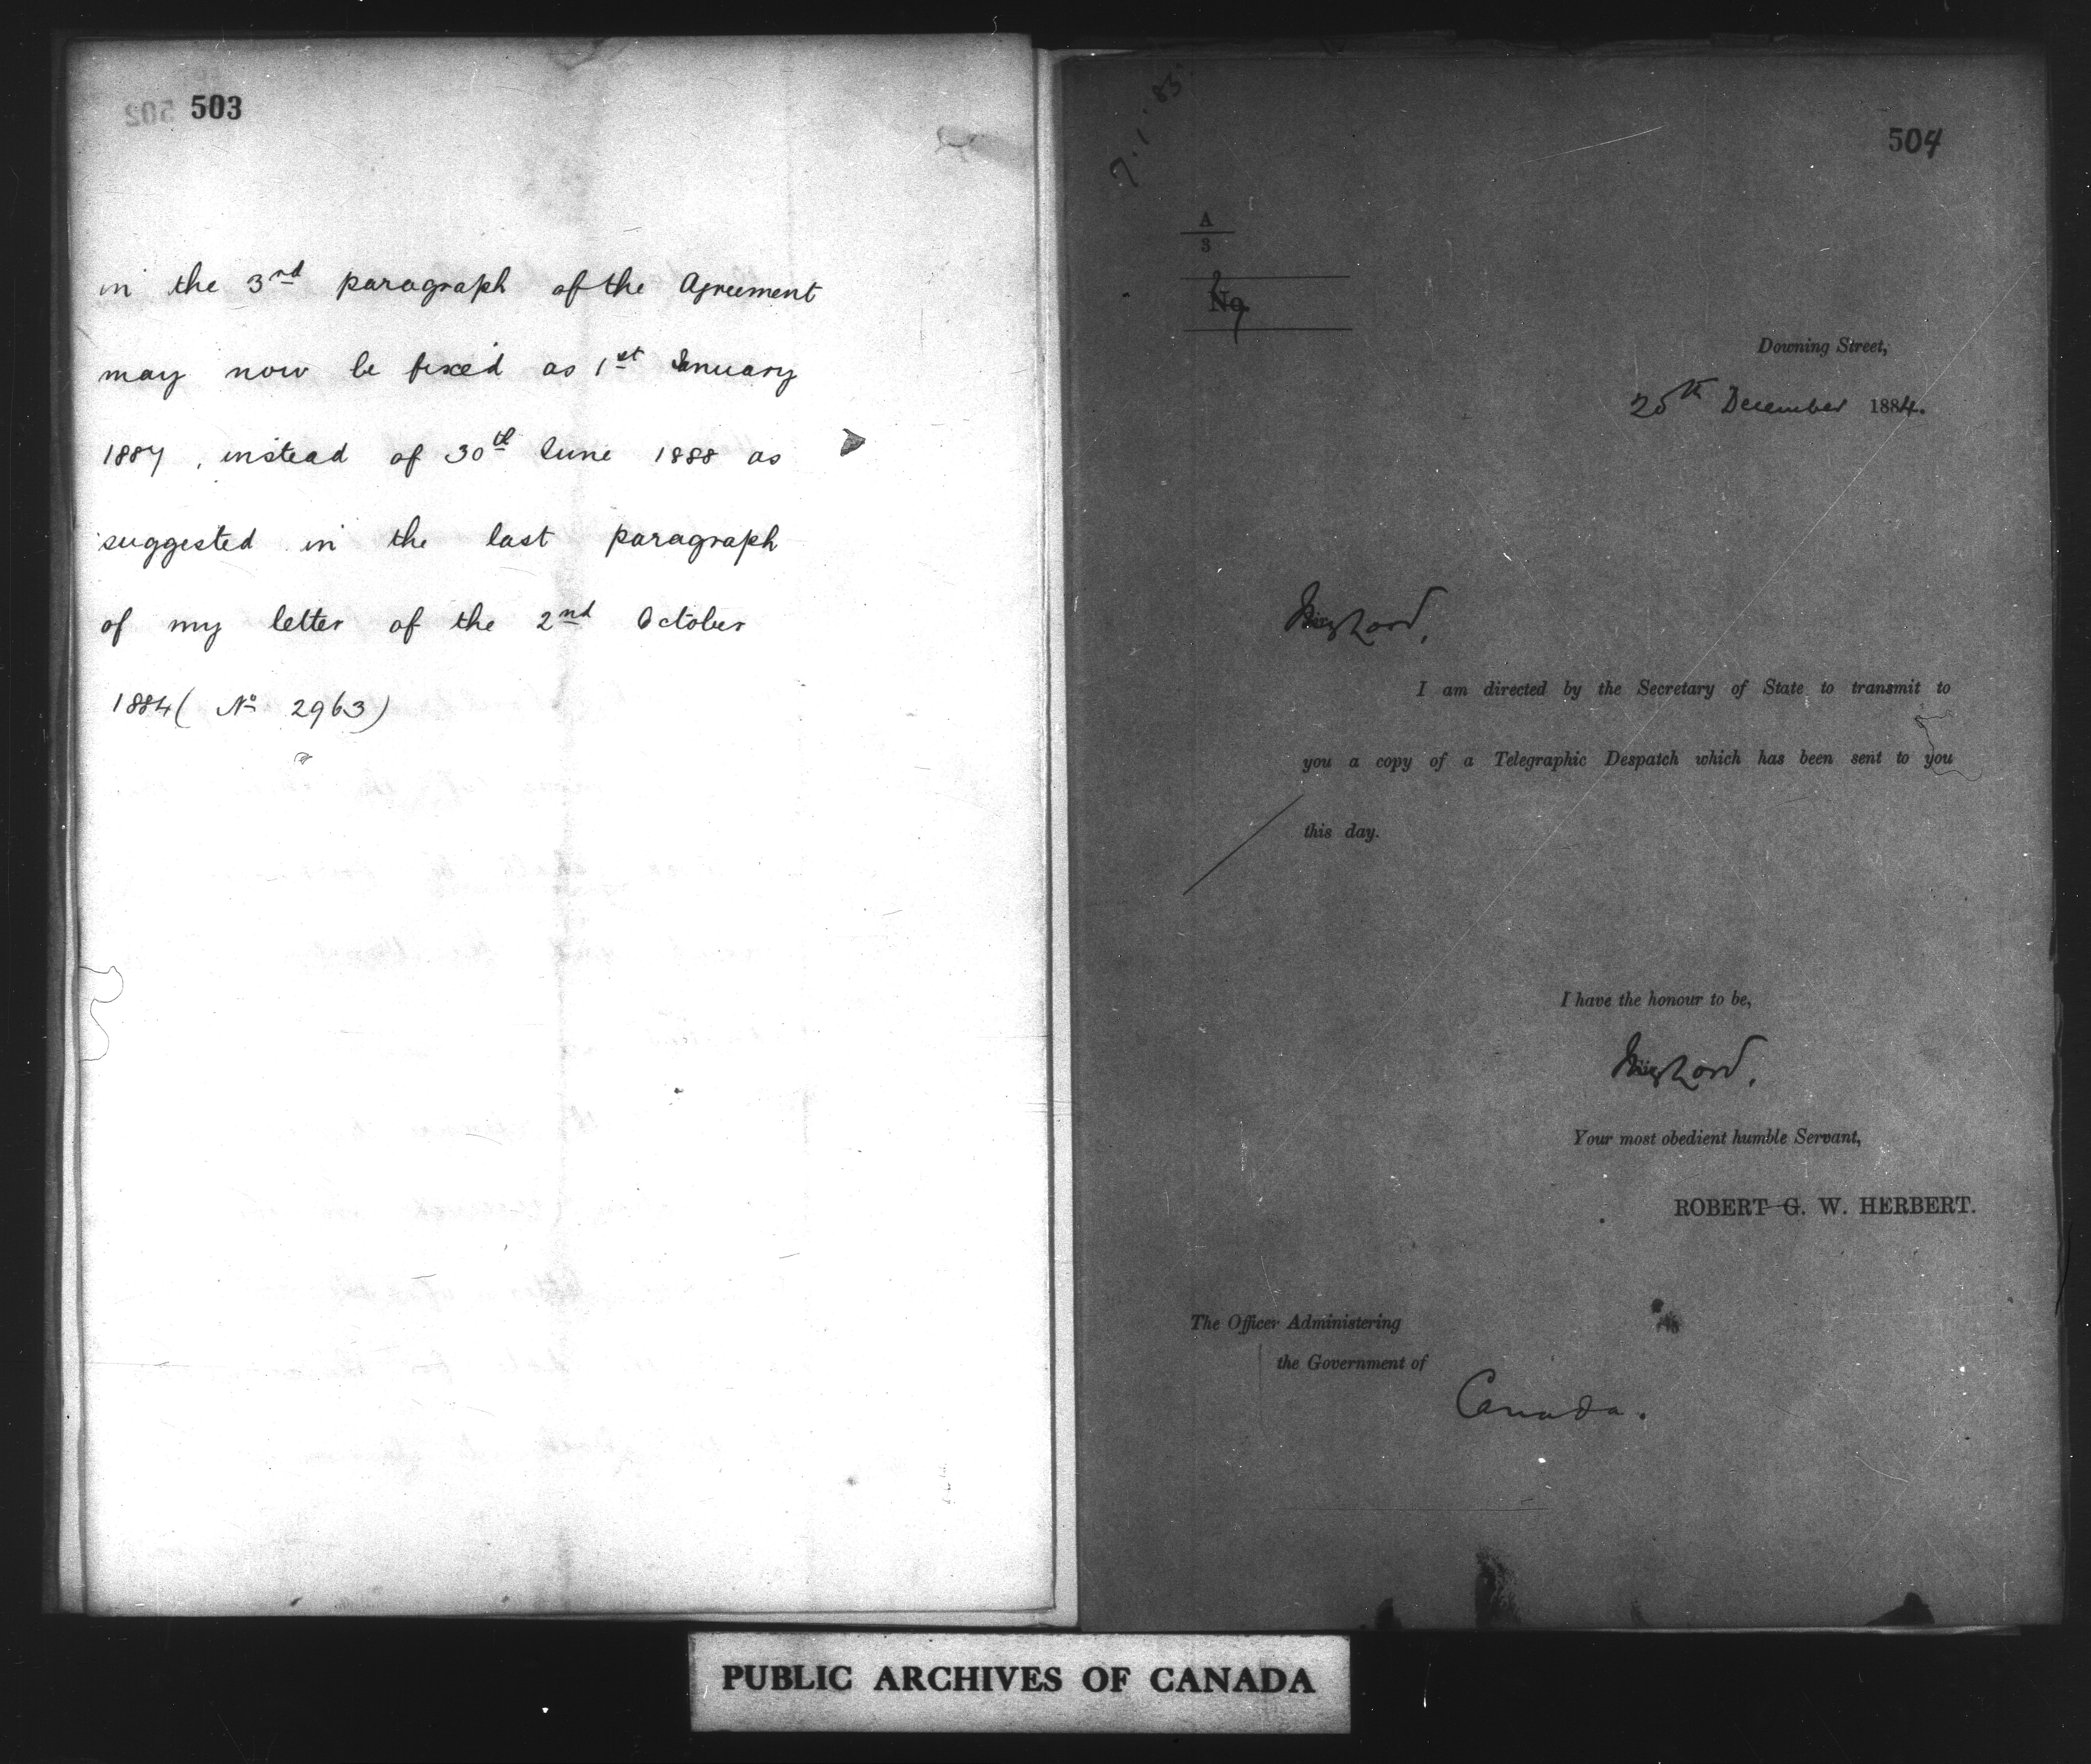 503
in the 3rd paragraph of the Agreement
may now be fixed as 1st January
1887, instead of 30th June 1888 as
suggested in the last paragraph
of my letter of the 2nd October
1884 (No 2963)
504
A
3
No.
Downing Street,
December 1884.
My Lord,
I am directed by the Secretary of State to transmit to
you a copy of a Telegraphic Despatch which has been sent to you
this day.
I have the honour to be,
My Lord,
Your most obedient humble Servant,
ROBERT G. W. HERBERT.
The Officer Administering
the Government of
Canada.
PUBLIC ARCHIVES OF CANADA